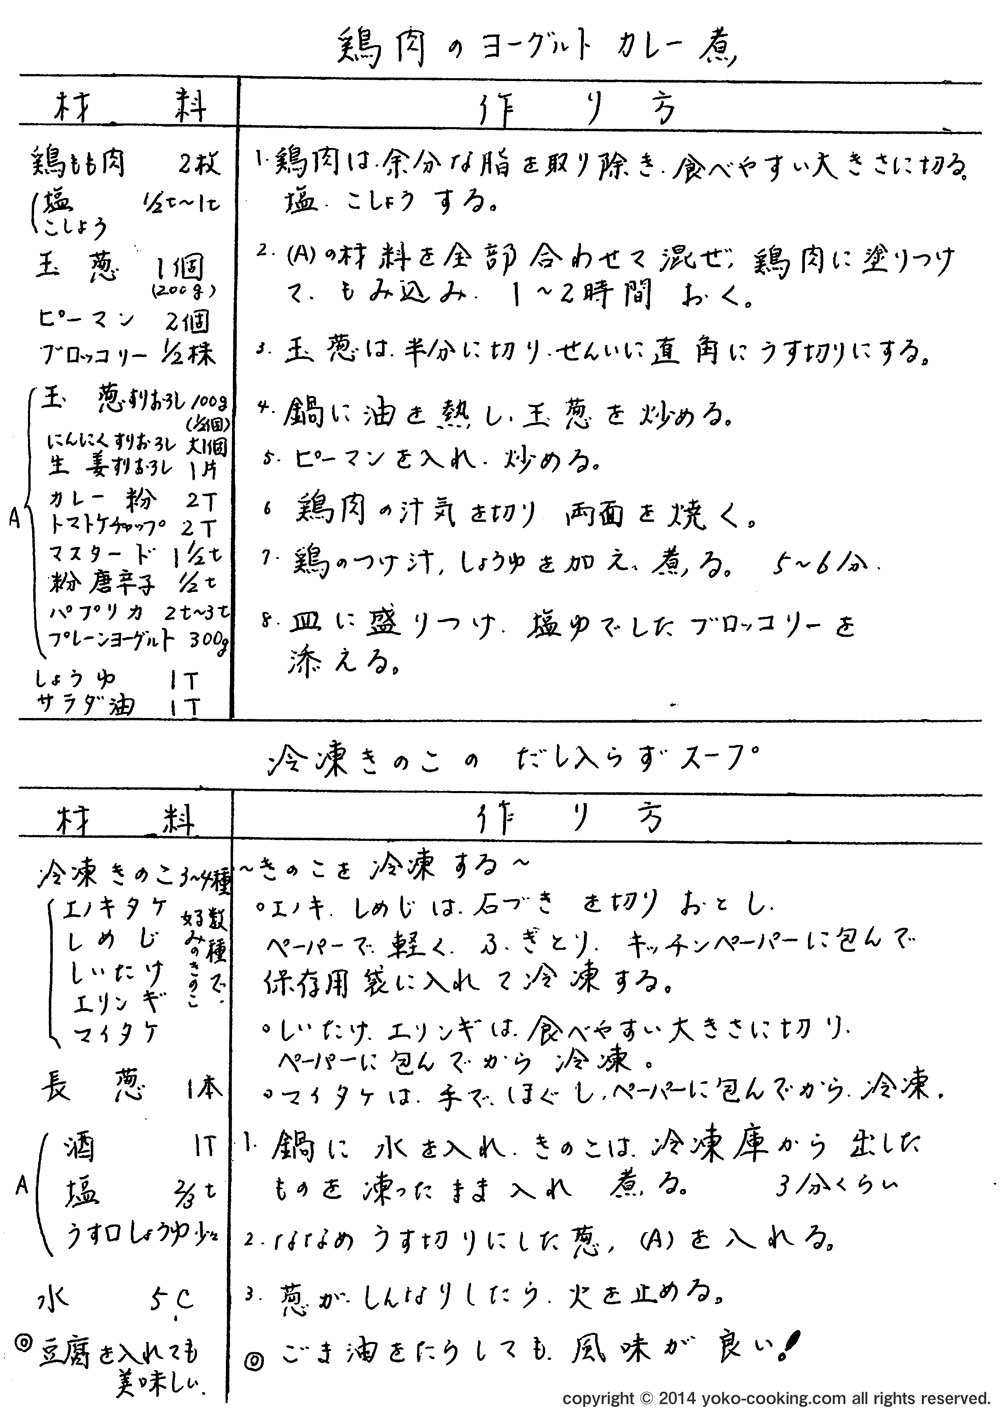 鶏肉のヨーグルトカレー煮
材 料
作 り 方
鶏もも肉 2枚
塩 1/2t〜1t
こしょう
玉葱 1個
(200g)
ピーマン 2個
ブロッコリー 1/2株
A
玉葱すりおろし 100g
(1/2個)
にんにくすりおろし 大1個
生姜すりおろし 1片
カレー粉 2T
トマトケチャップ 2T
マスタード 1 1/2t
粉唐辛子 1/2t
パプリカ 2t〜3t
プレーンヨーグルト 300g
しょうゆ 1T
サラダ油 1T
1. 鶏肉は、余分な脂を取り除き、食べやすい大きさに切る。
塩、こしょうする。
2. (A)の材料を全部合わせて混ぜ、鶏肉に塗りつけ
て、もみ込み、1〜2時間おく。
3. 玉葱は、半分に切り、せんいに直角にうす切りにする。
4. 鍋に油を熱し、玉葱を炒める。
5. ピーマンを入れ、炒める。
6 鶏肉の汁気を切り 両面を焼く。
7. 鶏のつけ汁、しょうゆを加え、煮る。 5〜6分.
8. 皿に盛りつけ、塩ゆでしたブロッコリーを
添える。
冷凍きのこの だし入らずスープ
材 料
作 り 方
冷凍きのこ 3〜4種
エノキタケ
しめじ
しいたけ
エリンギ
マイタケ
好みのきのこ
数種で、
長葱 1本
A
酒 1T
塩 2/3t
うす口しょうゆ 少々
水 5C
◎豆腐を入れても
美味しい.
〜きのこを冷凍する〜
○エノキ、しめじは、石づきを切りおとし、
ペーパーで、軽く、ふきとり、キッチンペーパーに包んで
保存用袋に入れて冷凍する。
○しいたけ、エリンギは、食べやすい大きさに切り、
ペーパーに包んでから冷凍。
○マイタケは、手で、ほぐし、ペーパーに包んでから、冷凍.
1. 鍋に水を入れ、きのこは、冷凍庫から出した
ものを凍ったまま入れ 煮る。 3分くらい
2. ななめうす切りにした葱、(A)を入れる。
3. 葱が、しんなりしたら、火を止める。
◎ ごま油をたらしても、風味が良い!
copyright © 2014 yoko-cooking.com all rights reserved.